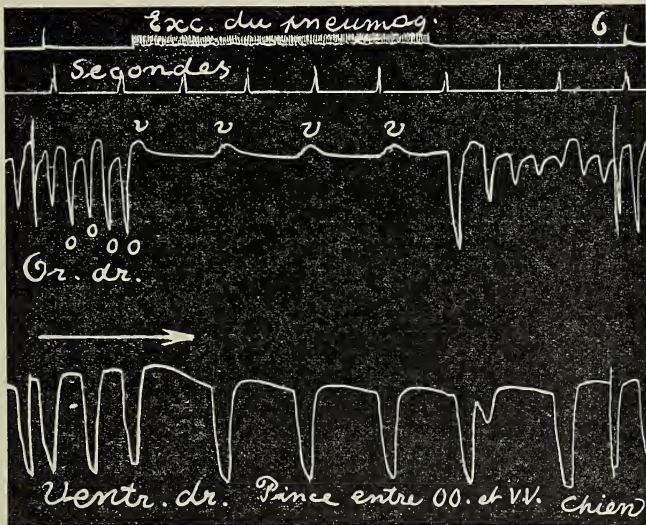 Exc. du pneumog. 6
Segondes
v v v v
o o o o
Or. dr.
Ventr. dr. Pince entre OO. et V.V. chien